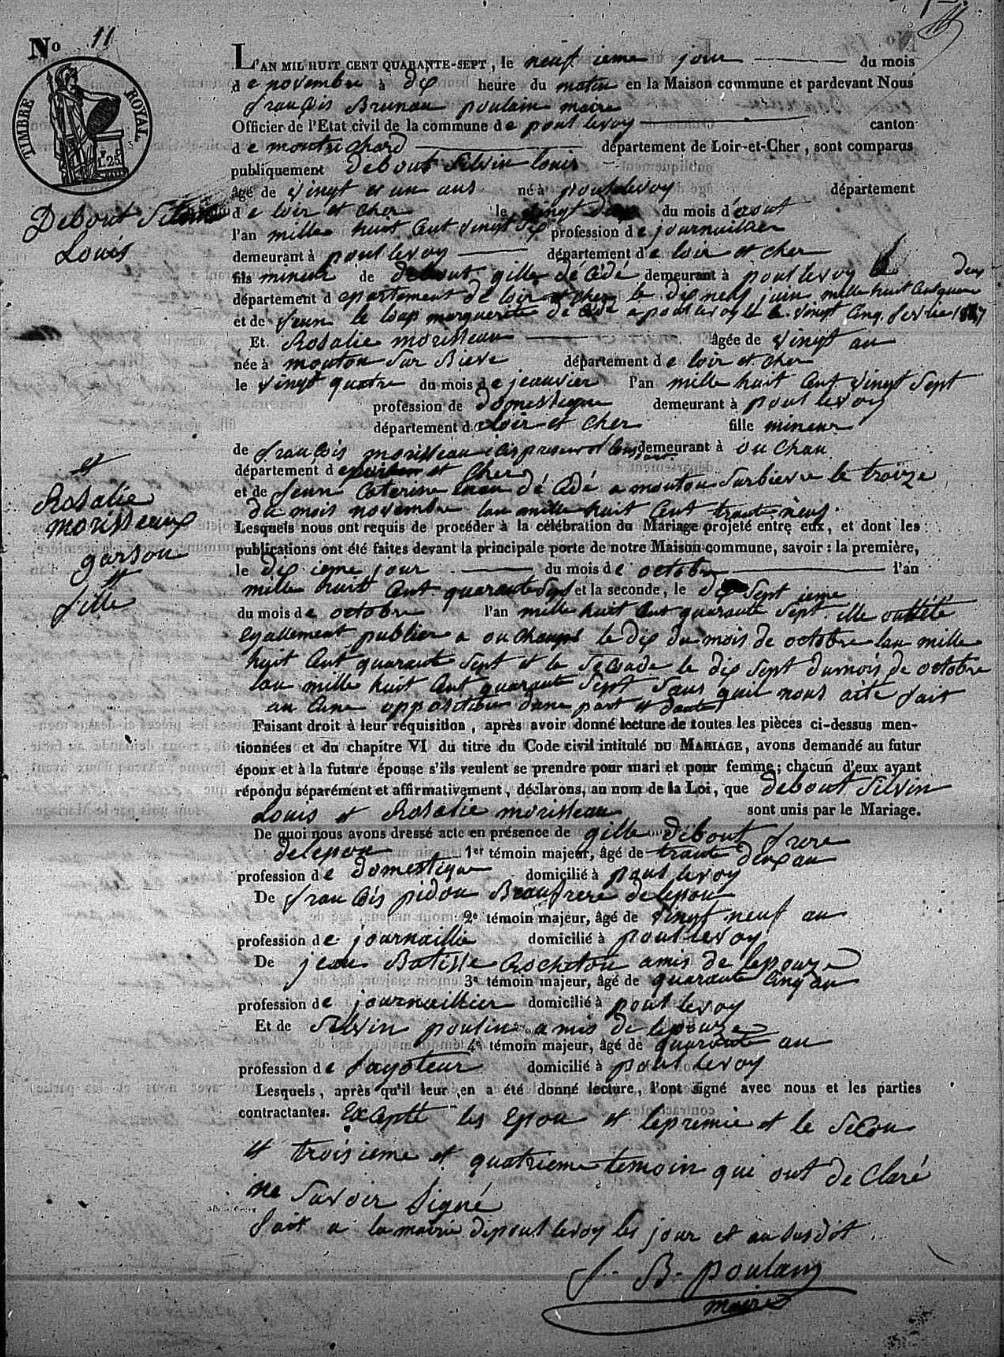 No 11
TIMBRE ROYAL
1F 25
L'AN MIL HUIT CENT QUARANTE-SEPT, le neuf ieme jour du mois
de novembre à dix heure du matin en la Maison commune et pardevant Nous
françois Brunau poulain maire
Officier de l'Etat civil de la commune de pont levoy canton
de montrichard département de Loir-et-Cher, sont comparus
publiquement debout Silvin louis
âgé de vingt et un ans né à pontlevoy département
de loir et cher le vingt deux du mois d'aout
l'an mille huit cent vingt six profession de journaillier
demeurant à pontlevoy département de loir et cher
fils mineur de debout gille dé cédé demeurant à pontlevoy le
département departement de loir et cher le dix neuf juin mille huit cent quarante deux
et de jeun le loup marguerite dé cédé a pontlevoy le vingt cinq fevrie 1847
Et Rosalie morisseau âgée de vingt an
née à mouton sur Bievre département de loir et cher
le vingt quatre du mois de jeanvier l'an mille huit cent vingt sept
profession de domestique demeurant à pontlevoy
département de loir et cher fille mineur
de françois morisseau demeurant à ou chan
département d et cher
et de jeun caterine dé cédé a mouton surbievre le troize
du mois novembre lan mille huit cent trante neuf
Lesquels nous ont requis de procéder à la célébration du Mariage projeté entre eux, et dont les
publications ont été faites devant la principale porte de notre Maison commune, savoir : la première,
le dix ieme jour du mois de octobre l'an
mille huit cent quarante sept et la seconde, le dix sept ieme
du mois de octobre l'an mille huit cent quarante sept ille ont été
egallement publier a ouchamps le dix du mois de octobre lan mille
huit cent quarante sept et le secondde le dix sept dumois de octobre
lan mille huit cent quarante sept sans quil nous aité fait
au cune opposition dune part et dautre
Faisant droit à leur réquisition, après avoir donné lecture de toutes les pièces ci-dessus men-
tionnées et du chapitre VI du titre du Code civil intitulé DU MARIAGE, avons demandé au futur
époux et à la future épouse s'ils veulent se prendre pour mari et pour femme; chacun d'eux ayant
répondu séparément et affirmativement, déclarons, au nom de la Loi, que debout Silvin
Louis et Rosalie morisseau sont unis par le Mariage.
De quoi nous avons dressé acte en présence de gille debout frere
delepou 1er témoin majeur, âgé de trante deux an
profession de domestique domicilié à pontlevoy
De françois pidou Beaufrere delepou
2e témoin majeur, âgé de vingt neuf an
profession de journaillie domicilié à pontlevoy
De jean Batisse Rocheton amis de lepouze
3e témoin majeur, âgé de quarante cinq an
profession de journaillier domicilié à pontlevoy
Et de Silvin poulin amis de lepouze
4e témoin majeur, âgé de quarante an
profession de fagoteur domicilié à pontlevoy
Lesquels, après qu'il leur en a été donné lecture, l'ont signé avec nous et les parties
contractantes. Exceptt les Epou et lepremie et le secon
et troisieme et quatrieme temoin qui ont de claré
ne savoir signé
fait a la mairie depont levoy les jour et an susdit
f. B. poulain
maire
Debout Silvin
Louis
et
Rosalie
morisseaux
garson
et
fille